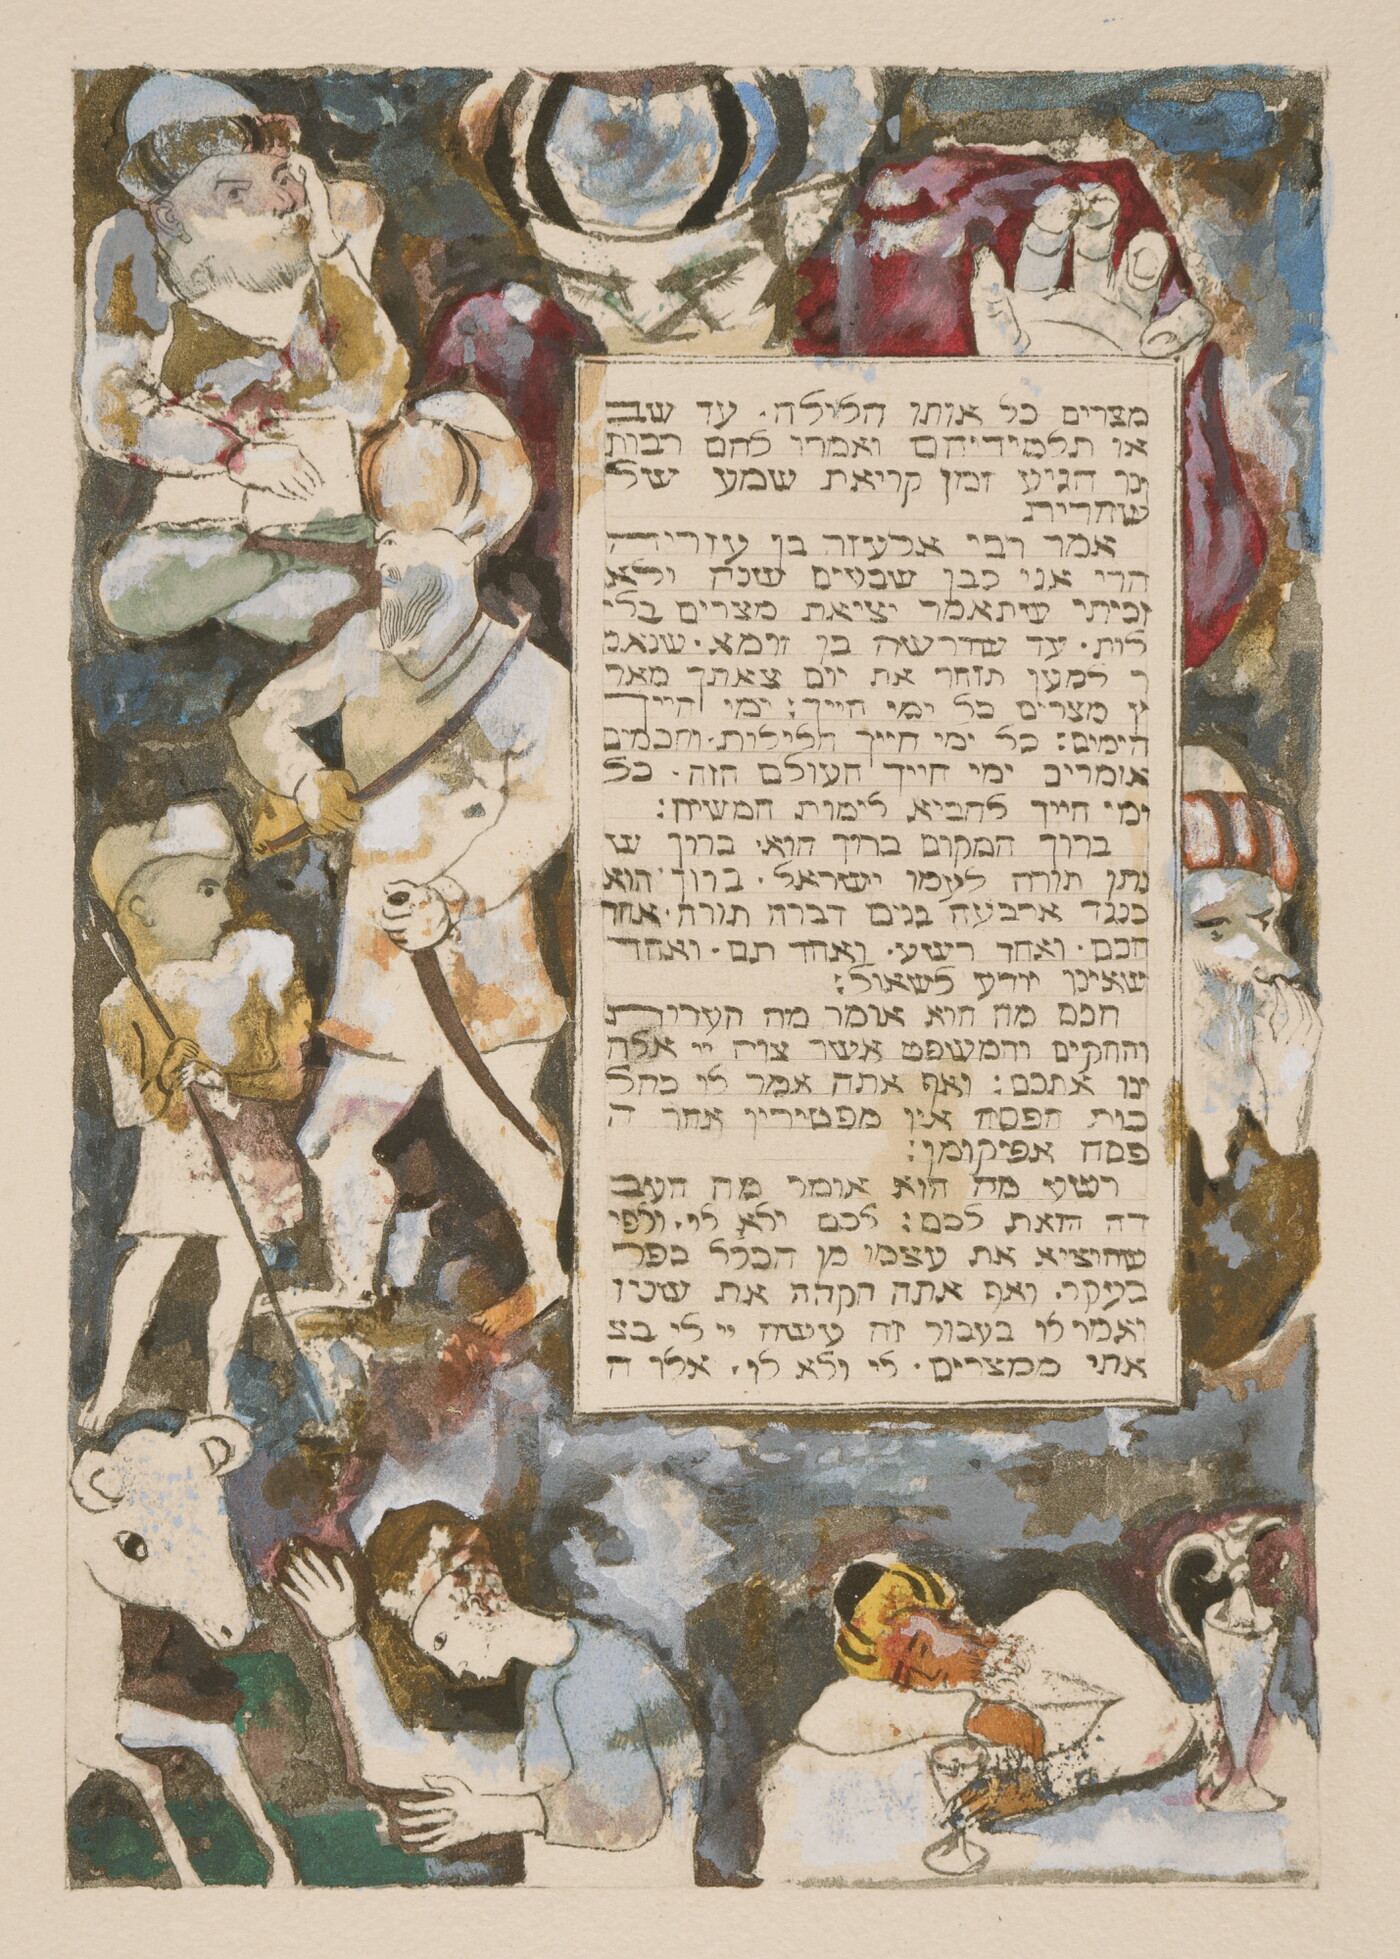 מצרים כל אותו הלילה · עד שב
או תלמידיהם ואמרו להם רבות
ינו הגיע זמן קריאת שמע של
שחרית
אמר רבי אלעזר בן עזריה
הרי אני כבן שבעים שנה ולא
זכיתי שיתאמר יציאת מצרים בלי
לות · עד שדרשה בן זומא · שנאמ
ר למען תזכר את יום צאתך מאר
ץ מצרים כל ימי חייך : ימי חייך
הימים : כל ימי חייך הלילות · וחכמים
אומרים ימי חייך העולם הזה · כל
ימי חייך להביא לימות המשיח :
ברוך המקום ברוך הוא · ברוך ש
נתן תורה לעמו ישראל · ברוך הוא
כנגד ארבעה בנים דברה תורה · אחד
חכם · ואחד רשע · ואחד תם · ואחד
שאינו יודע לשאול :
חכם מה הוא אומר מה העדות
והחקים והמשפטים אשר צוה יי אלה
ינו אתכם : ואף אתה אמר לו כהל
כות הפסח אין מפטירין אחר ה
פסח אפיקומן :
רשע מה הוא אומר מה העב
דה הזאת לכם : לכם ולא לו · ולפי
שהוציא את עצמו מן הכלל כפר
בעקר · ואף אתה הקהה את שניו
ואמר לו בעבור זה עשה יי לי בצ
אתי ממצרים · לי ולא לו · אלו ה